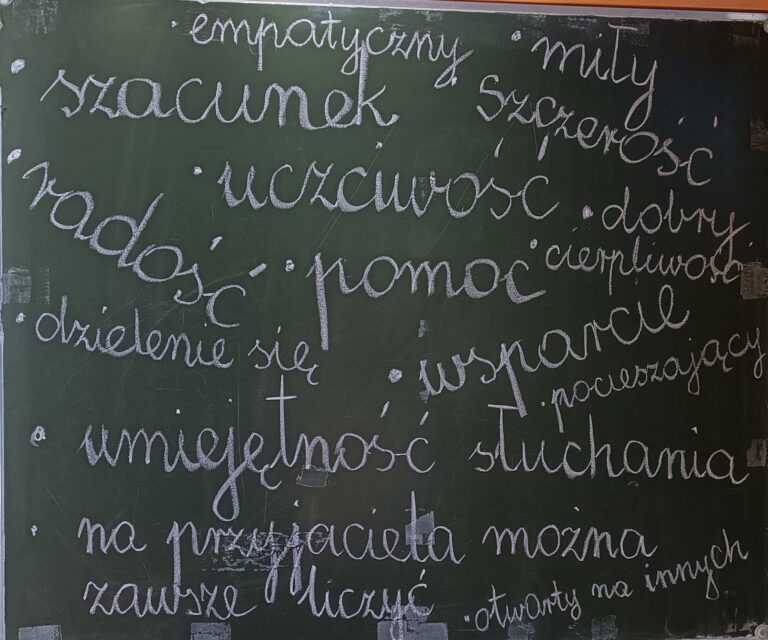 · empatyczny · miły
· szacunek · szczerość
· radość · uczciwość · dobry
· pomoc · cierpliwość
· dzielenie się · wsparcie
· pocieszający
· umiejętność słuchania
· na przyjaciela można
zawsze liczyć · otwarty na innych